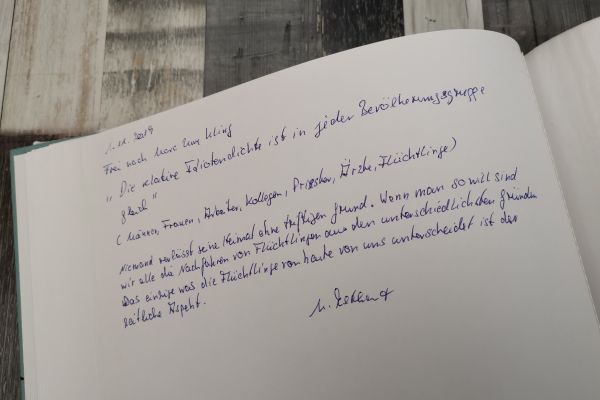 1.11.2019
Frei nach Marc Uwe Kling
"Die relative Idiotendichte ist in jeder Bevölkerungsgruppe
gleich"
(Männer, Frauen, Arbeiter, Kollegen, Priester, Ärzte, Flüchtlinge)
Niemand verlässt seine Heimat ohne triftigen Grund. Wenn man so will sind
wir alle die Nachfahren von Flüchtlingen aus den unterschiedlichsten Gründen
Das einzige was die Flüchtlinge von heute von uns unterscheidet ist der
zeitliche Aspekt.